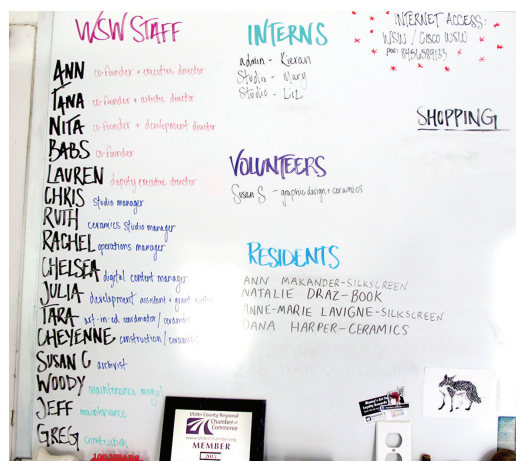 WSW STAFF
ANN co-founder + executive director
TANA co-founder + artistic director
NITA co-founder + development director
BABS co-founder
LAUREN deputy executive director
CHRIS studio manager
RUTH ceramics studio manager
RACHEL operations manager
CHELSEA digital content manager
JULIA development assistant + grant writer
TARA art-in-ed coordinator / ceramics
CHEYENNE construction / ceramics
SUSAN C archivist
WOODY maintenance mogul
JEFF maintenance
GREG construction
INTERNS
admin - Kieran
Studio - Mary
Studio - Liz
VOLUNTEERS
Susan S - graphic design + ceramics
RESIDENTS
ANN MAKANDER-SILKSCREEN
NATALIE DRAZ-BOOK
ANNE-MARIE LAVIGNE-SILKSCREEN
DANA HARPER-CERAMICS
INTERNET ACCESS:
WSW / CISCO WSW
pw: 8456589133
SHOPPING
Ulster County Regional
Chamber of
Commerce
www.ulsterchamber.org
MEMBER
2015